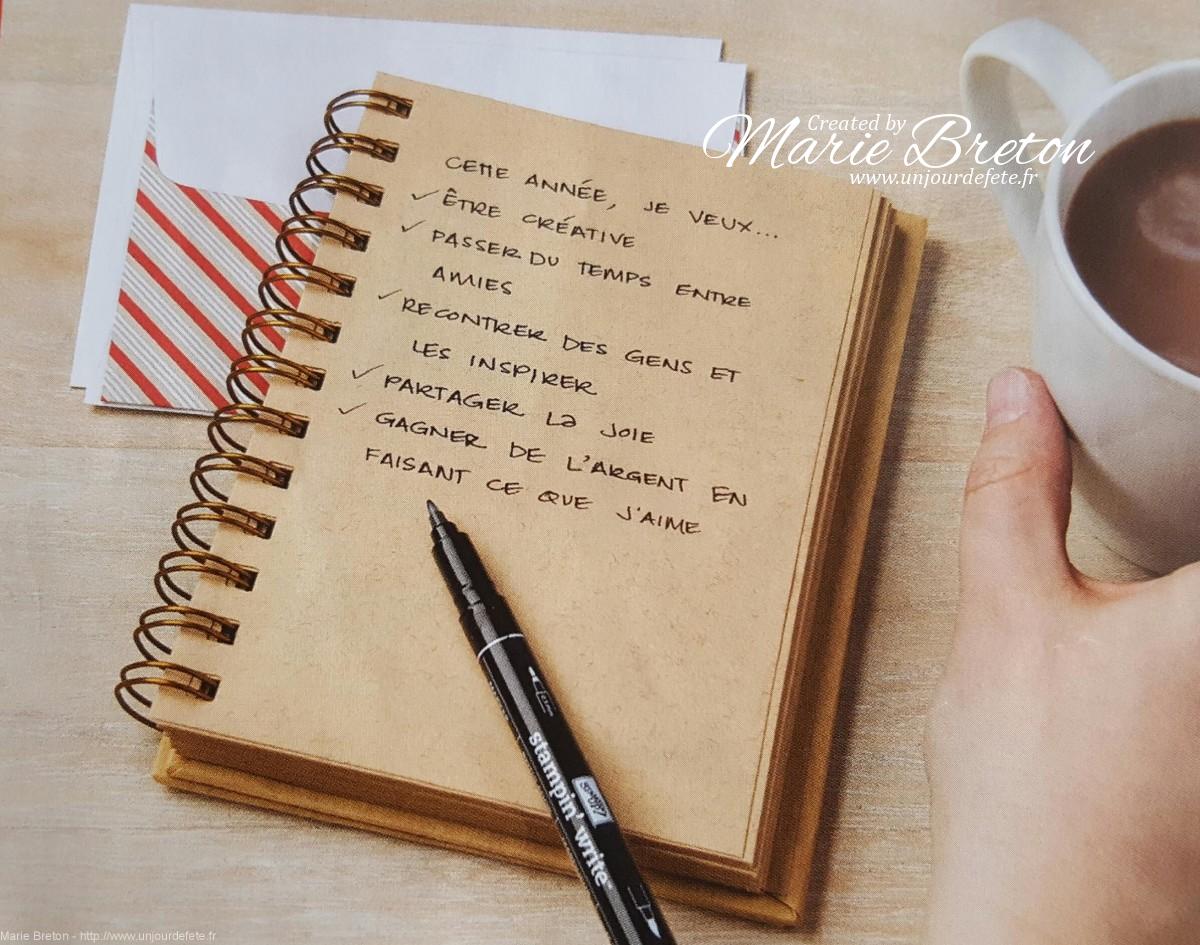 Created by
Marie Breton
www.unjourdefete.fr
CETTE ANNÉE, JE VEUX...
✓ ÊTRE CRÉATIVE
✓ PASSER DU TEMPS ENTRE
AMIES
✓ RECONTRER DES GENS ET
LES INSPIRER
✓ PARTAGER La JOIE
✓ GAGNER DE L'ARGENT EN
FAISANT CE QUE J'AIME
stampin' write
Marie Breton - http://www.unjourdefete.fr